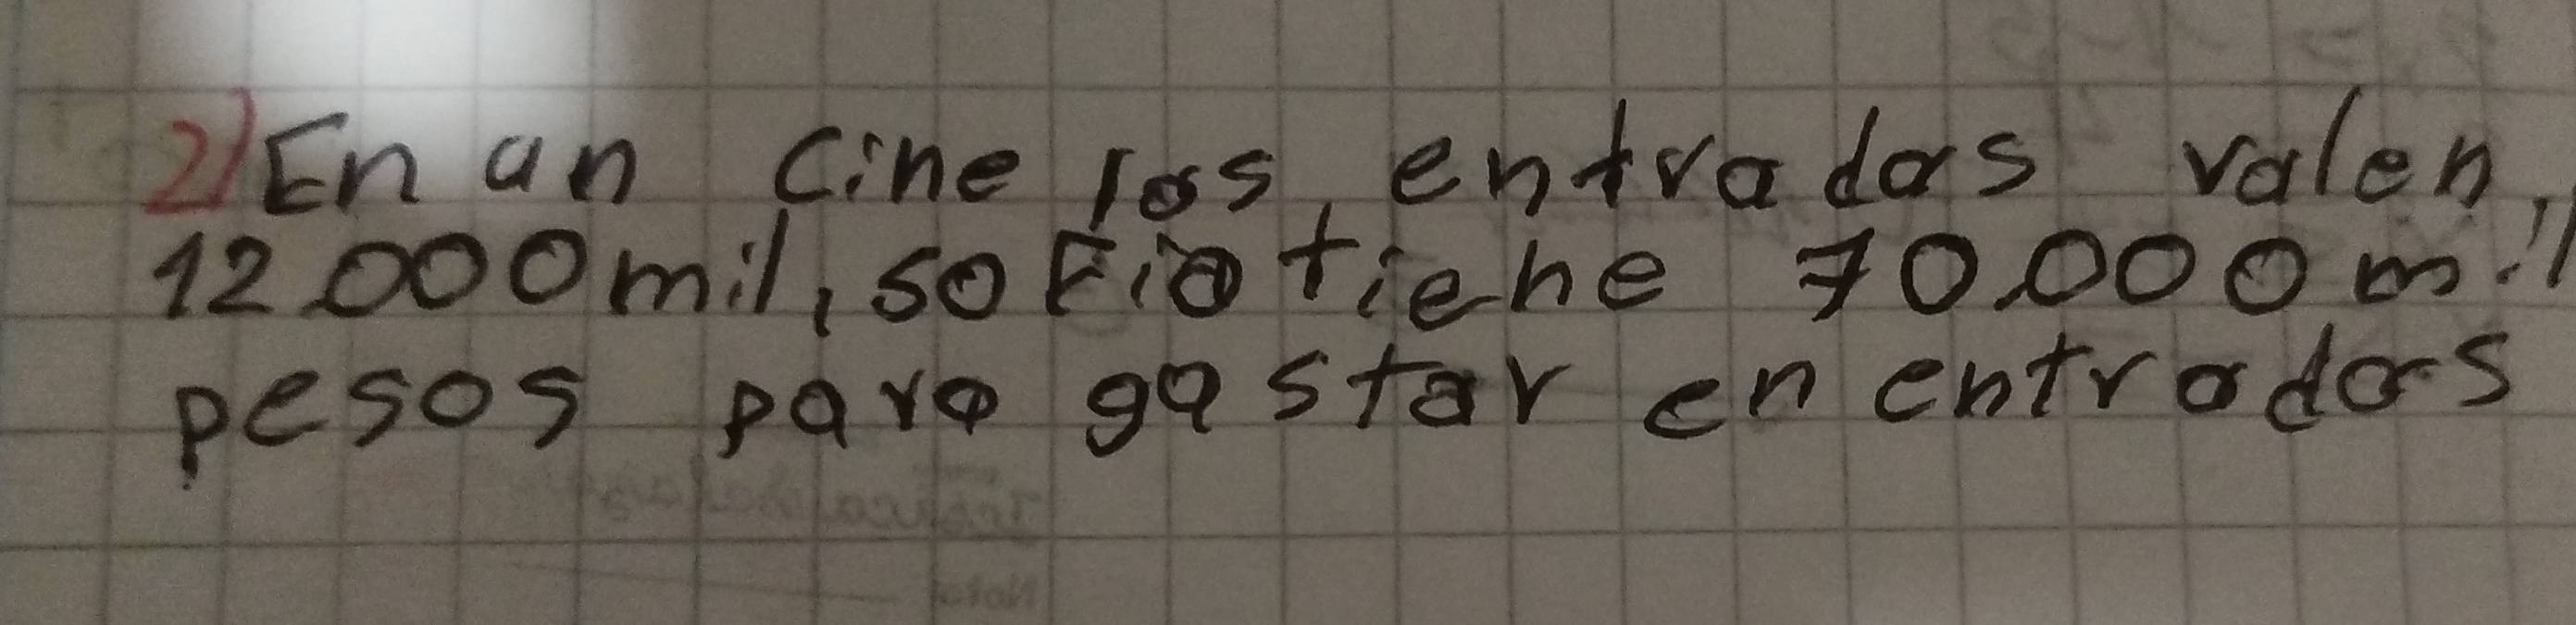 2) En un cine las entradas valen
12.000 mil, sofia tiene 70.000 mil
pesos para gastar en entradas